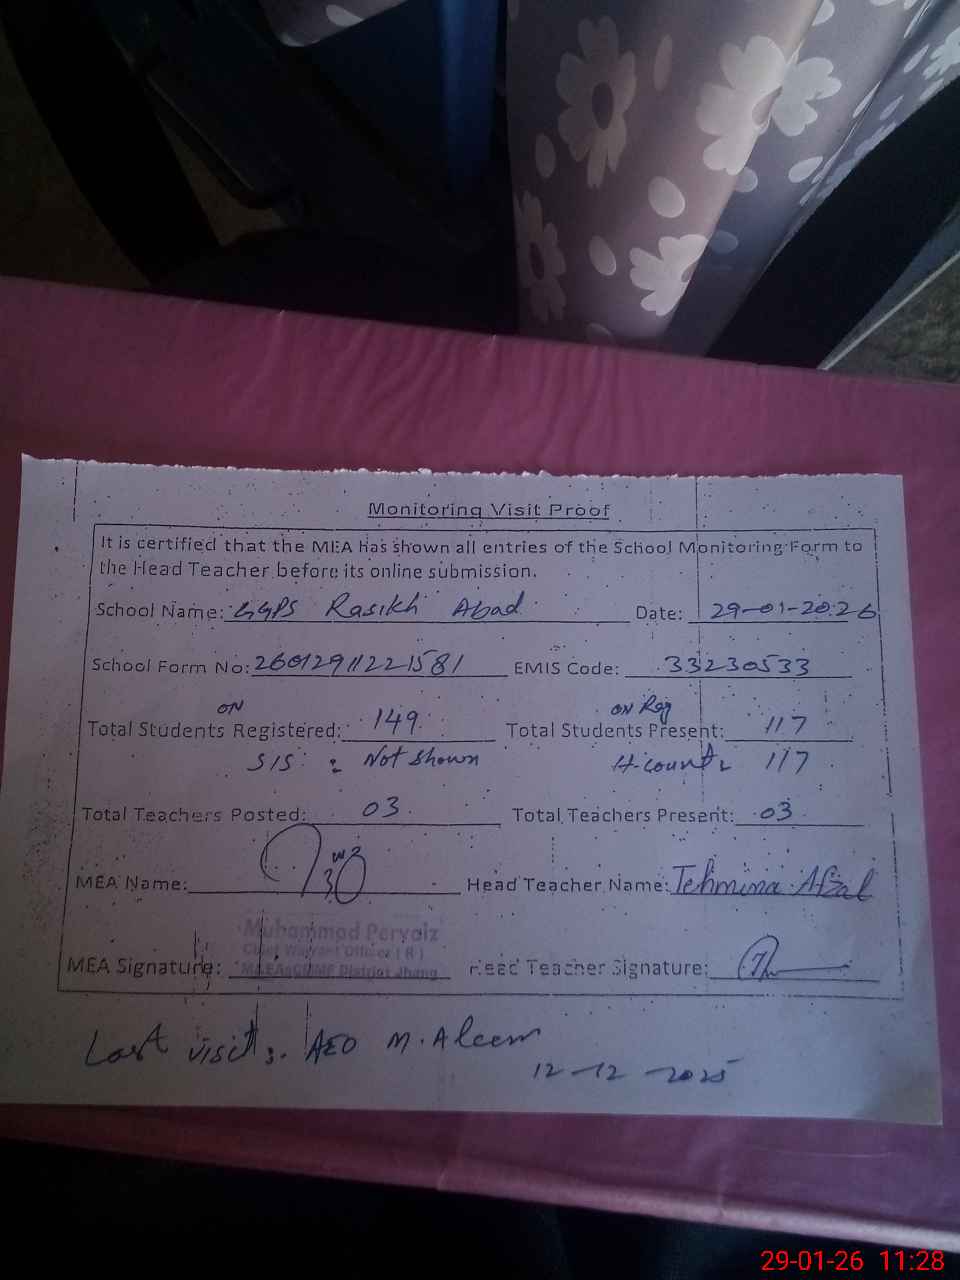 Monitoring Visit Proof
It is certified that the MEA has shown all entries of the School Monitoring Form to
the Head Teacher before its online submission.
School Name: GGPS Rasikh Abad Date: 29-01-2026
School Form No: 26012911221581 EMIS Code: 33230533
ON ON Reg
Total Students Registered: 149 Total Students Present: 117
SIS : Not Shown H.count: 117
Total Teachers Posted: 03 Total Teachers Present: 03
MEA Name: Head Teacher Name: Tehmina Afzal
Muhammad Pervaiz
Chief Warrant Officer ( R )
MEA Signature: District Jhang Head Teacher Signature:
Last visit:. AEO M. Aleem
12-12-2025
29-01-26 11:28